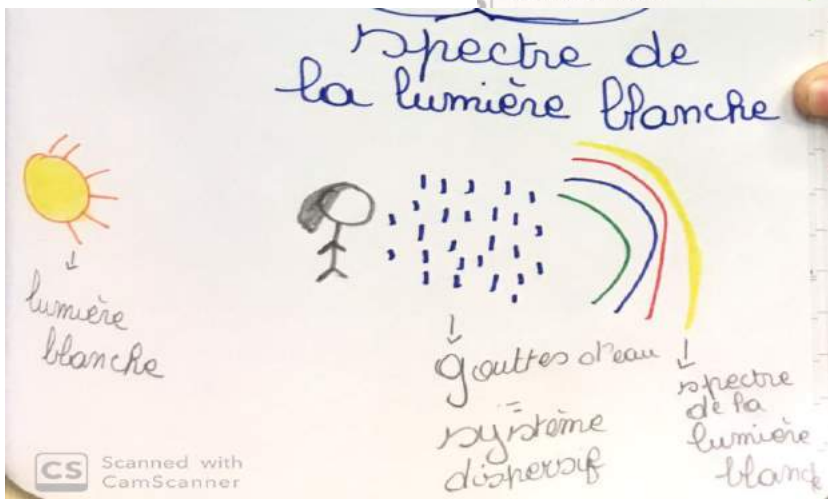 spectre de
la lumière blanche
lumière
blanche
gouttes d'eau
=
système
dispersif
spectre
de la
lumière
blanche
CS Scanned with
CamScanner